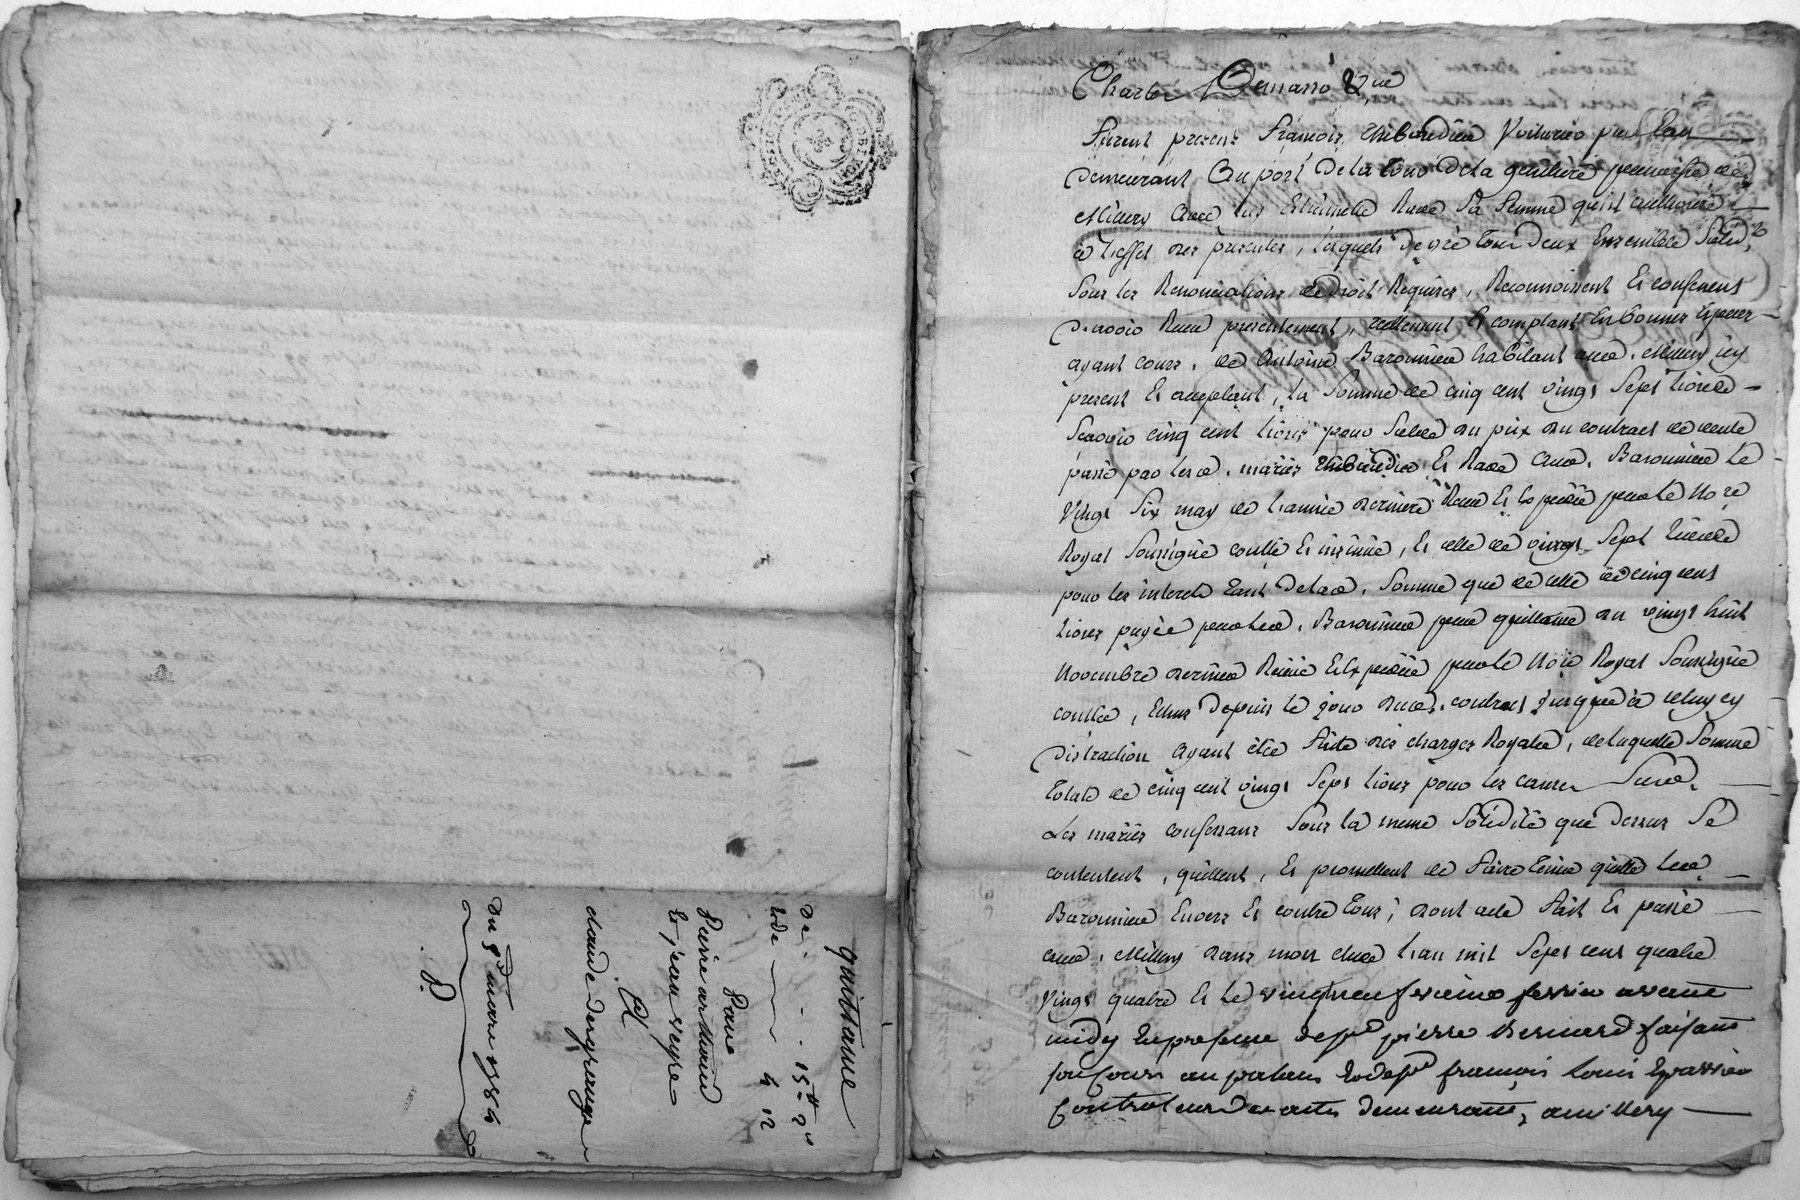 quittance
De . . . 15tt 2s
rode — 4 12
Pour
Pierre arthaud
le jeune veyre
Et
claude desgranges
du 9d mars 1784
Furent presens François Thibaudier Voiturier par Eau
Demeurant Au port De la Tour De la guillière paroisse de
Millery Avec luy Etiennette Rave Sa femme qu'il authorise
à l'effet des presentes, lesquels de gré tous deux Ensemble Solid.t
Sous les Renonciations de Droit Requises, Reconnoissent Et confessent
D'avoir Receu presentement, reellement Et comptant En bonnes Especes
ayant cours, de Antoine Baronnier habitant aud. Millery icy
present Et acceptant, la Somme de cinq cent vingt Sept livres
Scavoir cinq cent livres pour Solde du prix du contract de vente
passé par lesd. mariés Thibaudier Et Rave Aud. Baronnier le
Vingt Six may de l'année derniere Receu Et Expedié par le No.re
Royal Soussigné controllé Et insinué, Et celle de vingt Sept livres
pour les interets tant de lad. Somme que de celle de cinq cent
livres payée par led. Baronnier par quittance du vingt huit
Novembre dernier Receue Expediée par le No.re Royal Soussigné
controllée, Echus depuis le jour dud. contract jusques à celuy cy
Distraction Ayant été faite des charges Royales, de laquelle Somme
totale de cinq cent vingt Sept livres pour les causes Susd.
Les mariés confessans Sous la meme Solidité que dessus Se
contentent, quittent, Et promettent de faire tenir quitte led.
Baronnier Envers Et contre tous; dont acte fait Et passé
aud. Millery dans mon Etude l'an mil Sept cent quatre
Vingt quatre Et le vingt neuf fevrier avant
midy En presence de s.r pierre Bernard faisant
son cours au palais Et de s.r françois louis
Controlleur des actes demeurants, a millery